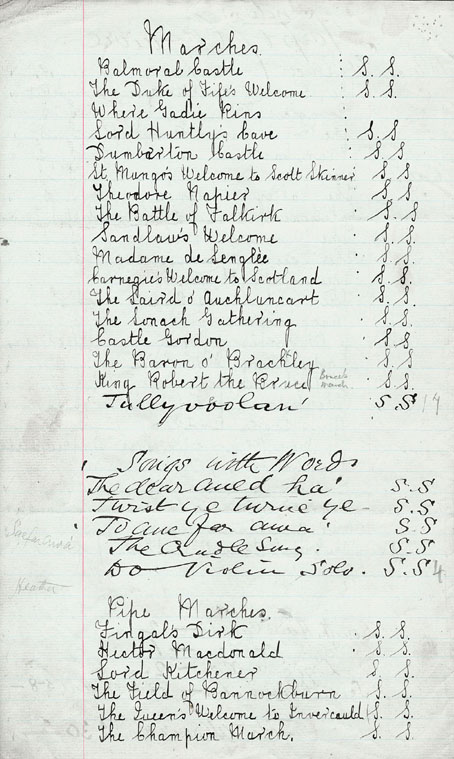 Marches.
Balmoral Castle : S. S.
The Duke of Fife's Welcome : S. S.
Where Gadie Rins :
Lord Huntly's Cave : S. S
Dumbarton Castle S S
St. Mungo's Welcome to Scott Skinner S S
Theodore Napier S S
The Battle of Falkirk S. S
Sandlaw's Welcome S S.
Madame de Senglèe S S.
Carnegie's Welcome to Scotland S. S.
The Laird o' Auchluncart S. S.
The Lonach Gathering S. S.
Castle Gordon S. S
The Baron o' Brackley S. S
King Robert the Bruce Bruce's March S S
Tullyvoolan' S. S 17
Songs with Words
The dear auld ha' S. S
Twist ye turne ye S. S
To ane far awa' S. S
The Cradle Song. S. S
Do Violin Solo. S. S 4
Heather
Pipe Marches.
Fingal's Dirk S. S.
Hector Macdonald S. S.
Lord Kitchener S S.
The Field of Bannockburn S. S.
The Queen's Welcome to Invercauld S. S.
The Champion March. S. S.